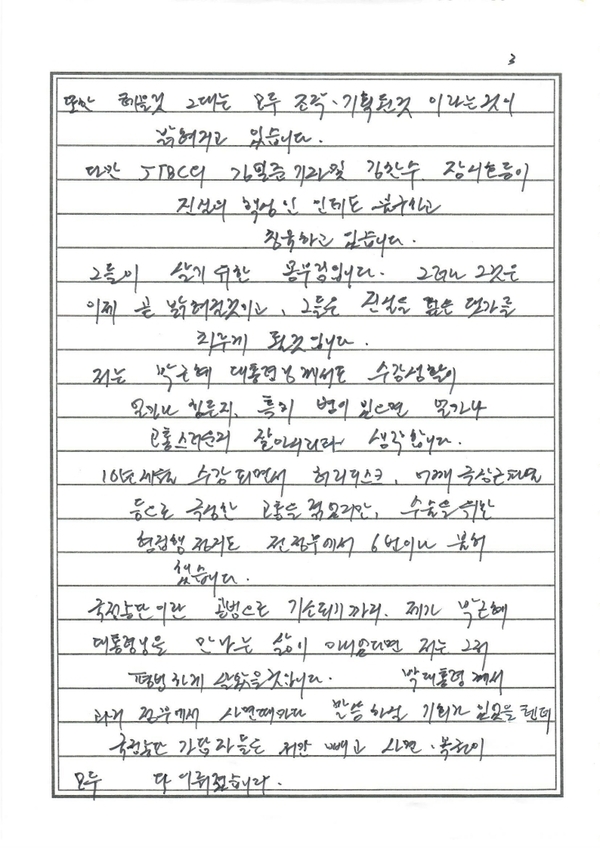 3
또한 태블릿 그대는 모두 조작·기획된것 이라는것이
밝혀지고 있습니다.
다만 JTBC의 김필준기자및 김한수, 장시호등이
진실의 핵심인 인데도 불구하고
침묵하고 있습니다.
그들이 살기위한 몸부림입니다. 그러나 그것은
이제 곧 밝혀질것이고, 그들은 진실을 덮은 댓가를
치루게 될것입니다.
저는 박근혜 대통령님께서도 수감생활이
얼마나 힘든지, 특히 병이 있으면 얼마나
고통스러운지 잘아시리라 생각합니다.
10년 세월 수감되면서 허리디스크, 어깨 극상근파열
등으로 극심한 고통을 겪었지만, 수술을 위한
형집행정지도 전정부에서 6번이나 불허
했습니다.
국정농단이란 공범으로 기소되기까지, 제가 박근혜
대통령님을 만나는 삶이 아니었다면 저는 그저
평범하게 살았을것입니다. 박대통령께서
과거 정부에서 사면때마다 말씀하실 기회가 있었을텐데
국정농단 가담자들은 저만 빼고 사면·복권이
모두 다 이뤄졌습니다.